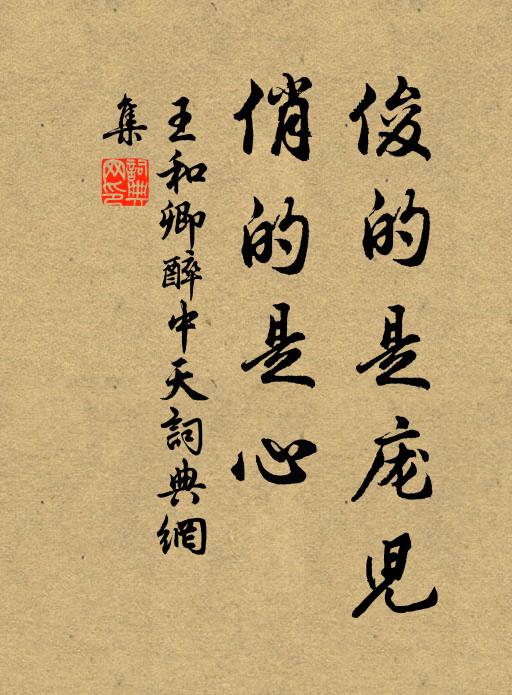 俊的是庞兒
俏的是心
王和卿醉中天詞典網
集
詞典
网印